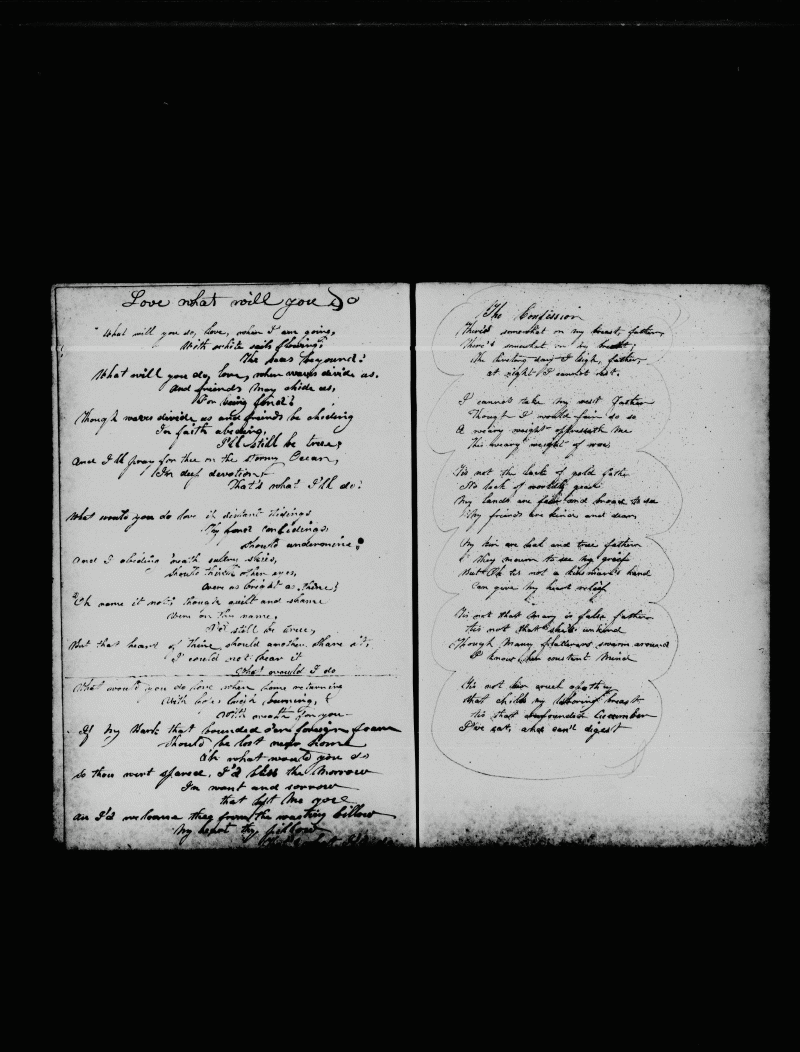 Love what will you Do
"What will you do, love, when I am going,
With white sails flowing,
The seas beyond?
What will you do, love, when waves divide us,
and friends may chide us,
For being fond?
Though waves divide us and friends be chiding
In faith abiding,
I'll still be true,
and I'll pray for thee on the stormy Ocean,
In deep devotion,
That's what I'll do!
What would you do love if distant tidings
Thy fond confidings
Should undermine;
and I abiding 'neath sultry skies,
Should think other eyes,
were as bright as thine;
"Oh name it not, though guilt and shame
Were on thy name,
I'd still be true,
But that heart of thine should another share it,
I could not bear it
What would I do
What would you do love when home returning
With hopes high burning,
With wealth for you
If my bark that bounded o'er foreign foam
Should be lost near home
Oh what would you do
So thou wert spared, I'd bless the morrow
In want and sorrow
that left me you
as I'd welcome thee from the wasting billow
My heart thy pillow
The Confession
There's somewhat on my breast, father,
There's somewhat on my breast,
The livelong day I sigh, father,
at night I cannot rest.
I cannot take my rest father
Though I would fain do so
A weary weight oppresseth me
This weary weight of woe
Tis not the lack of gold father
No lack of worldly gear
My lands are fair and broad to see
My friends are kind and dear
My kin are leal and true father
They mourn to see my grief
But Oh tis not a kinsman's hand
Can give my heart relief
Tis not that Mary is false father
Tis not that she's unkind
Though Many flatterers swarm around
I know her constant Mind
Tis not her apathy
that chills my laboring breast
tis that confounded Cucumber
I've eat, and can't digest